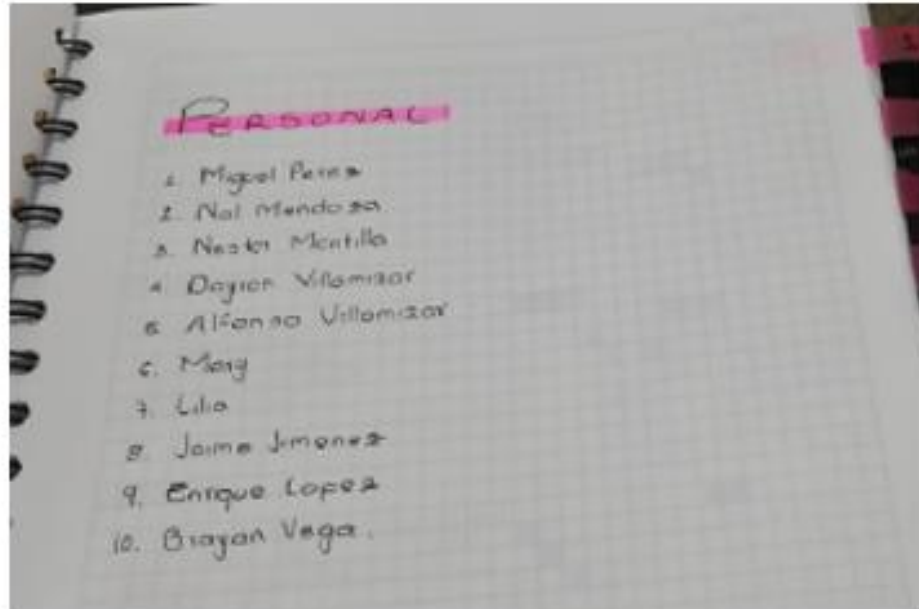 PERSONAL
1. Miguel Perez
2. Nol Mendoza.
3. Nestor Montilla
4. Dayron Villamizar
5. Alfonso Villamizar
6. Mary
7. Lilia
8. Jaime Jimenez
9. Enrique Lopez
10. Brayan Vega.